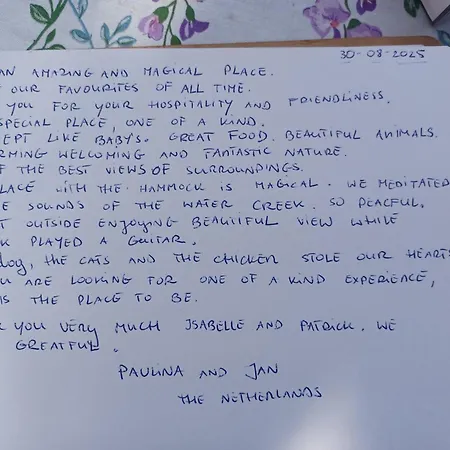 30-08-2025
AN AMAZING AND MAGICAL PLACE.
OUR FAVOURITES OF ALL TIME.
YOU FOR YOUR HOSPITALITY AND FRIENDLINESS.
SPECIAL PLACE, ONE OF A KIND.
EPT LIKE BABY'S. GREAT FOOD. BEAUTIFUL ANIMALS.
RMING WELCOMING AND FANTASTIC NATURE.
F THE BEST VIEWS OF SURROUNDINGS.
LACE WITH THE HAMMOCK IS MAGICAL. WE MEDITATED
E SOUNDS OF THE WATER CREEK. SO PEACFUL.
T OUTSIDE ENJOYING BEAUTIFUL VIEW WHILE
K PLAYED A GUITAR.
DOG, THE CATS AND THE CHICKEN STOLE OUR HEARTS
U ARE LOOKING FOR ONE OF A KIND EXPERIENCE,
IS THE PLACE TO BE.
K YOU VERY MUCH ISABELLE AND PATRICK. WE
GREATFUL.
PAULINA AND JAN
THE NETHERLANDS